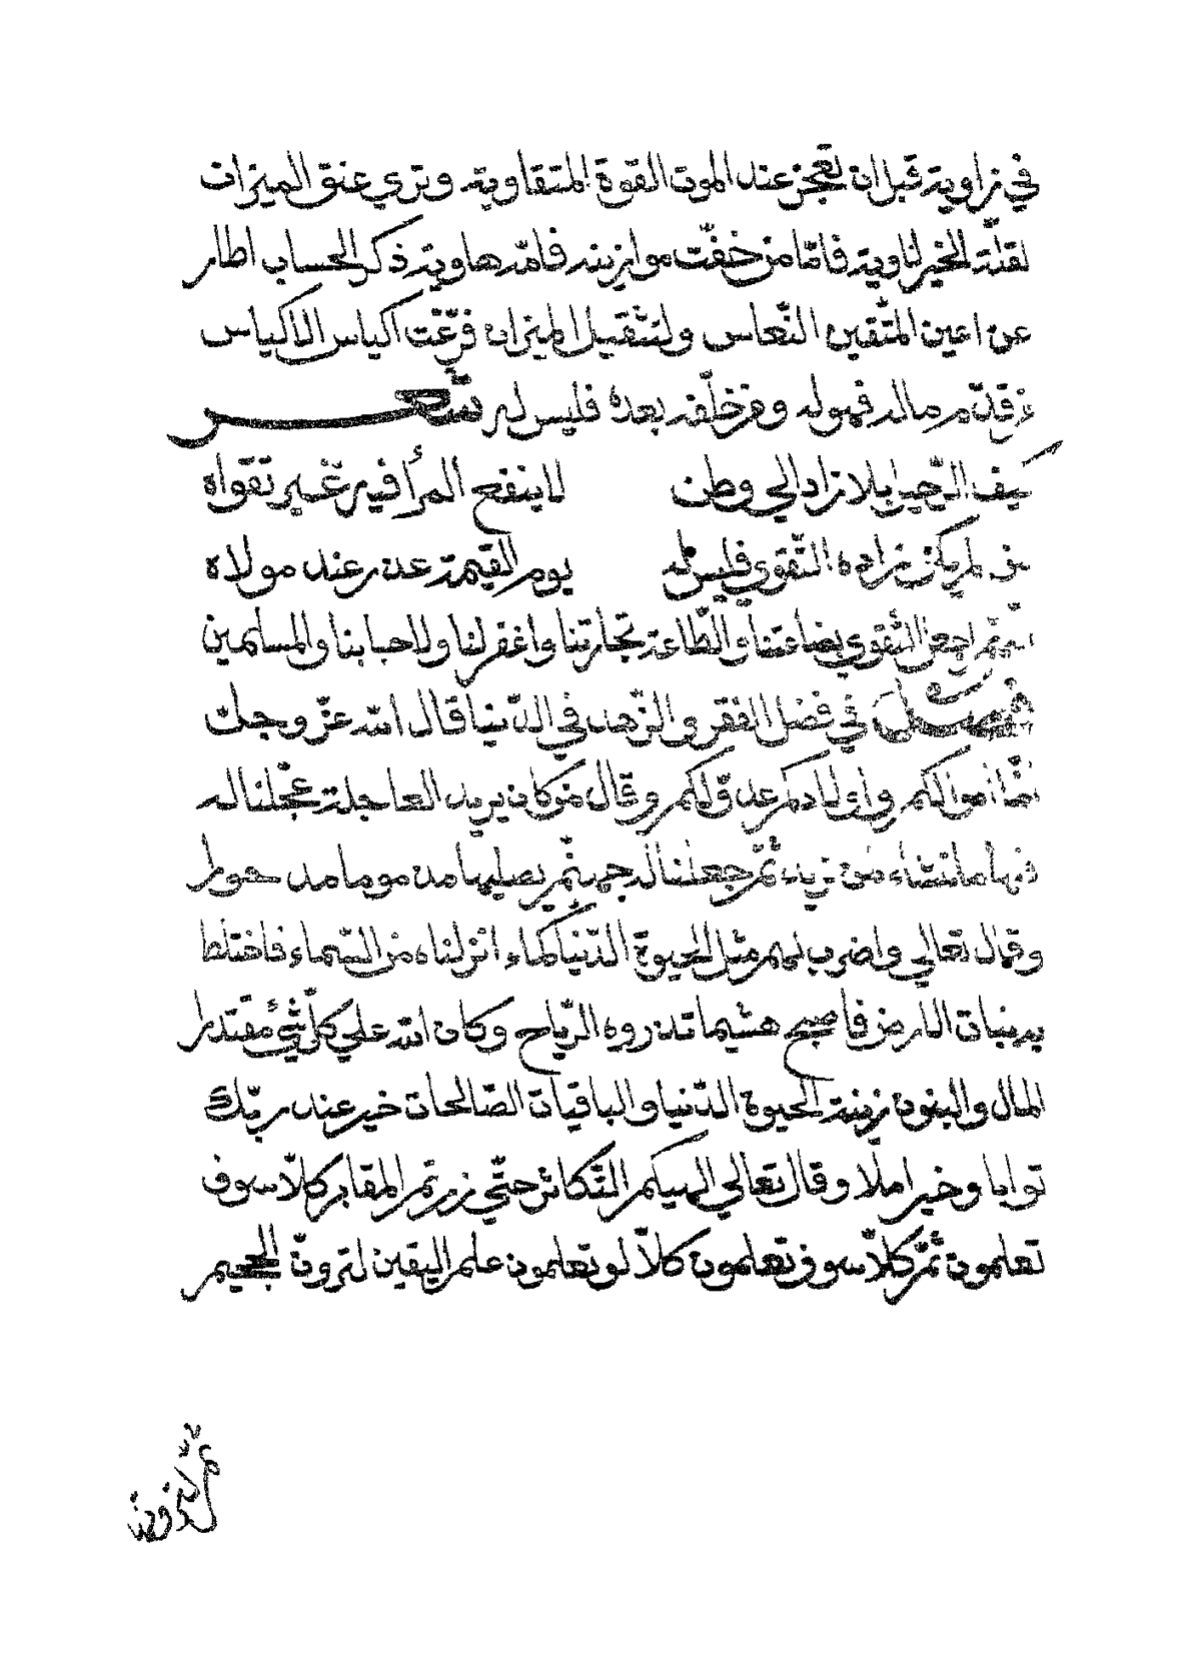 في زاوية قبل ان تعجز عند الموت القوة المتقاوية وتري عنق الميزان
لقلّة الخير لناوية فامّا من خفّت موازينه فامّه هاوية ذكر الحساب اطار
عن اعين المتّقين النّعاس ولتثقيل الميزان فرّغت اكياس الاكياس
قدّم ماله فهو له ومن خلّفه بعده فليس له شعر
كيف الرّحيل بلا زاد الي وطن لا ينفع المرأ فيه غير تقواه
من لم يكن زاده التّقوي فليس له يوم القيمة عذر عند مولاه
اجعل التّقوي بضاعتنا والطّاعة تجارتنا واغفر لنا ولاحبابنا والمسلمين
فصل في فضل الفقر والزّهد في الدّنيا قال الله عزّ وجلّ
انّما اموالكم واولادكم عدوّ لكم وقال من كان يريد العاجلة عجّلنا له
فيها ما نشاء من نريد ثمّ جعلنا له جهنّم يصليها مذموما مدحورا
وقال تعالي واضرب لهم مثل الحيوة الدّنيا كماء انزلناه من السّماء فاختلط
به نبات الارض فاصبح هشيما تذروه الرّياح وكان الله علي كلّ شئ مقتدرا
المال والبنون زينة الحيوة الدّنيا والباقيات الصّالحات خير عند ربّك
ثوابا وخير املا وقال تعالي الهيكم التّكاثر حتّي زرتم المقابر كلّا سوف
تعلمون ثمّ كلّا سوف تعلمون كلّا لو تعلمون علم اليقين لترونّ الجحيم